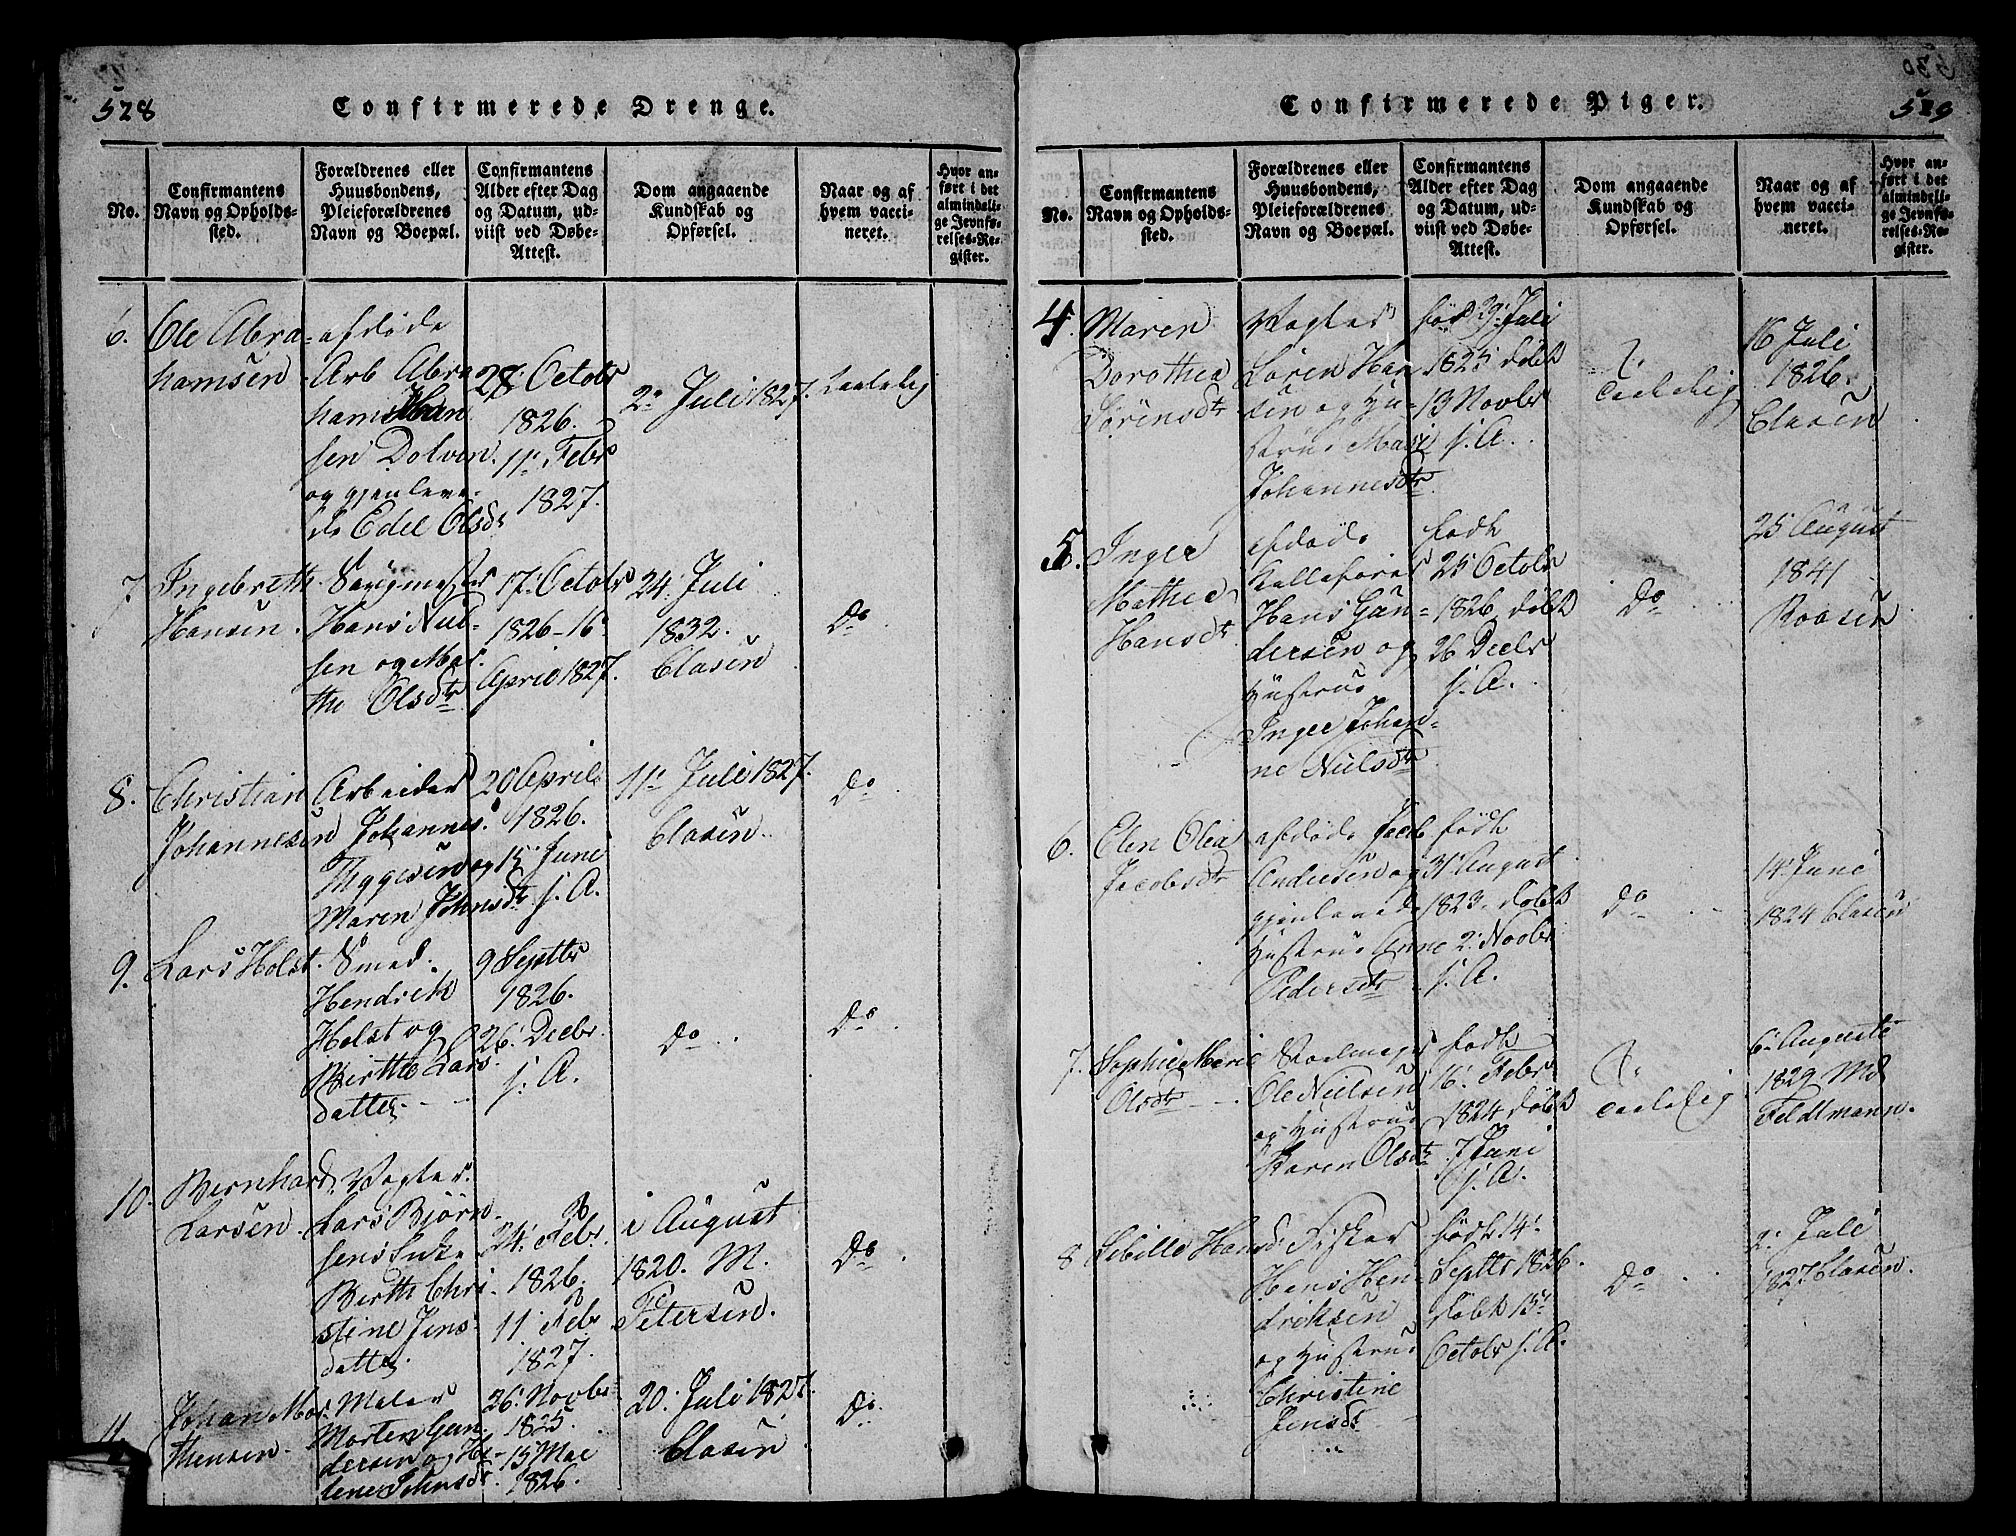 528
Confirmerede Drenge.
No.
Confirmantens
Navn og Opholds-
sted.
Forældrenes eller
Huusbondens,
Pleieforældrenes
Navn og Boepæl.
Confirmantens
Alder efter Dag
og Datum, ud-
viist ved Døbe-
Attest.
Dom angaaende
Kundskab og
Opførsel.
Naar og af
hvem vacci-
neret.
Hvor an-
ført i det
almindeli-
ge Jevnfø-
relses-Re-
gister.
6.
Ole Abra-
hamsen
afdøde
Arb Abra
hams Han
sen Dolven
og gjenleve-
de Edel Olsdr
28 Octobr
1826.
11. Febr
1827.
2. Juli 1827.
Taalelig
7
Ingebreth
Hansen.
Hans Niel-
sen og Mar-
the Olsdtr
17. Octobr
1826 - 16
April 1827.
24. Juli
1832.
Clasen
do
8.
Christian
Johannesen
Arbeider
Johannes
Thygesen og
Maren Johnsdtr
20 April
1826.
15. Juni
s. A.
11. Juli 1827.
Clasen.
do
9.
Lars Holst.
Smed.
Hendrick
Holst og
Birthe Lars
datter
9 Septbr
1826.
26. Decbr.
s. A.
do
do
10.
Bernhard
Larsen.
Vogter
Lars Bjørn-
sens Enke
Birthe Chri-
stine Jens-
datter
24. Febr.
1826.
11. Febr
1827.
i August
1820. M.
Petersen.
do
11
Johan Mor-
thensen
Maler
Morten Gun-
dersen og He-
lene Johnsdr
26. Novbr
1825.
15 Mai
1826.
20. Juli 1827.
Clasen
do
529
Confirmerede Piger.
No.
Confirmantens
Navn og Opholds-
sted.
Forældrenes eller
Huusbondens,
Pleieforældrenes
Navn og Boepæl.
Confirmantens
Alder efter Dag
og Datum, ud-
viist ved Døbe-
Attest.
Dom angaaende
Kundskab og
Opførsel.
Naar og af
hvem vacci-
neret.
Hvor an-
ført i det
almindeli-
ge Jevnfø-
relses-Re-
gister.
4.
Maren
Dorothea
Sørensdtr
Vogter
Søren Han-
sen og Hu-
strue Mari
Johannesdtr
født 29. Juli
1825 døbt
13 Novbr
s. A.
Taalelig
16 Juli
1826.
Clasen
5.
Inger
Mathea
Hansdtr
afdøde
Hans Gun-
dersen og
Hustrue
Inger Johan-
ne Nielsdtr
født
25 Octobr
1826 døbt
26 Decbr
s. A.
do
25 August
1841
Roasen
6.
Elen Olea
Jacobsdtr
afdøde Jacob
Andersen og
gjenlevende
Hustrue Anne
Pedersdtr
født
31. August
1823. døbt
2. Novbr
s. A.
do
14. Juni
1824 Clasen
7.
Sophie Marie
Olsdtr
Ole Nielsen
og Hustrue
Karen Olsdtr
født
16. Febr
1824 døbt
7 Juni
s. A.
Taalelig
6. August
1829 Md
Feldtmann.
8
Sibille Hansd.
Fisker
Hans Hen-
driksen
og Hustrue
Christine
Jensdtr
født 14.
Septbr 1826.
døbt 15.
Octobr s. A.
do
2. Juli
1827 Clasen.